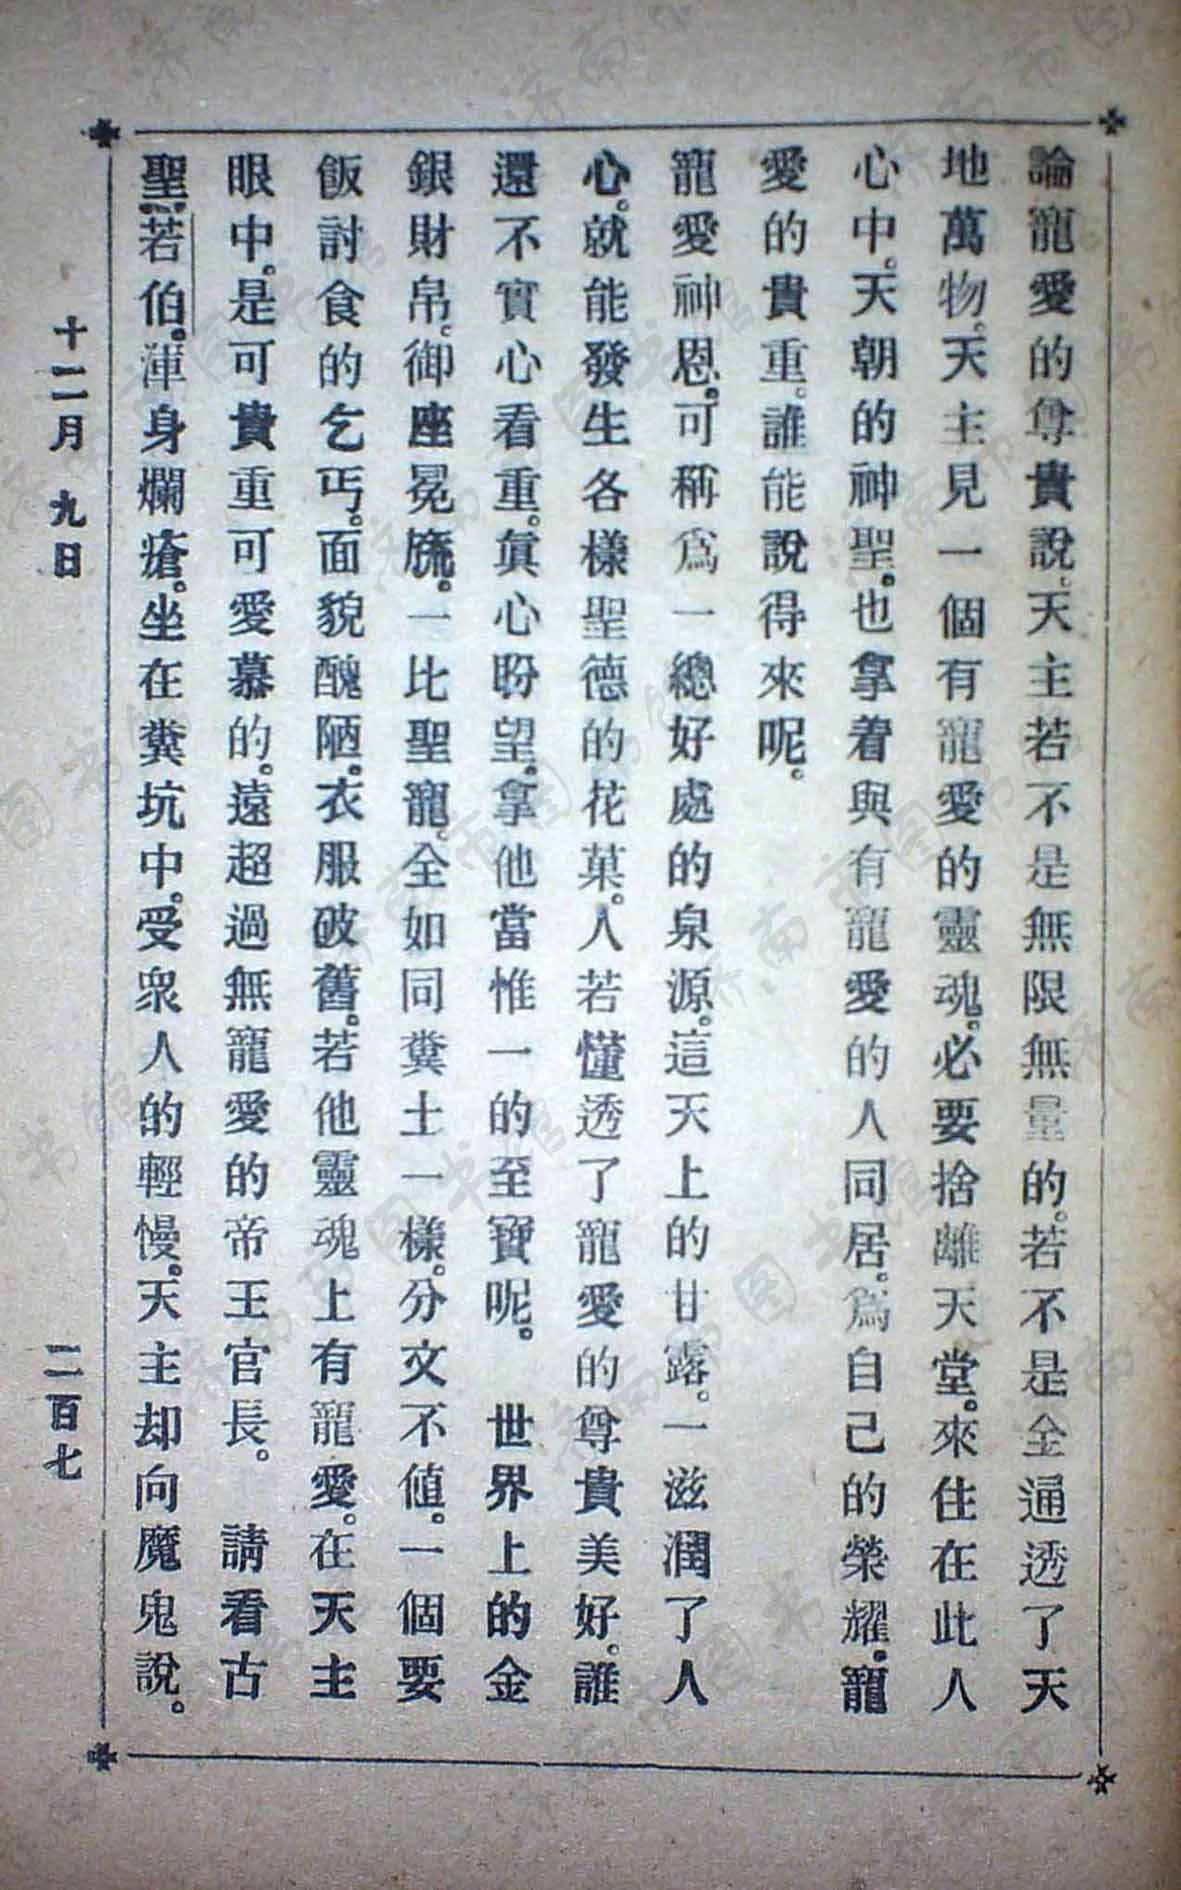 論寵愛的尊貴說。天主若不是無限無量的。若不是全通透了天
地萬物。天主見一個有寵愛的靈魂。必要捨離天堂。來住在此人
心中。天朝的神聖。也拿着與有寵愛的人同居。爲自己的榮耀。寵
愛的貴重。誰能說得來呢。
寵愛神恩。可稱爲一總好處的泉源。這天上的甘露。一滋潤了人
心。就能發生各樣聖德的花菓。人若懂透了寵愛的尊貴美好。誰
還不實心看重。眞心盼望。拿他當惟一的至寶呢。 世界上的金
銀財帛。御座冕旒。一比聖寵。全如同糞土一樣。分文不値。一個要
飯討食的乞丐。面貌醜陋。衣服破舊。若他靈魂上有寵愛。在天主
眼中。是可貴重可愛慕的。遠超過無寵愛的帝王官長。 請看古
聖若伯。渾身爛瘡。坐在糞坑中。受衆人的輕慢。天主却向魔鬼說。
十二月 九日 二百七
济南市图书馆